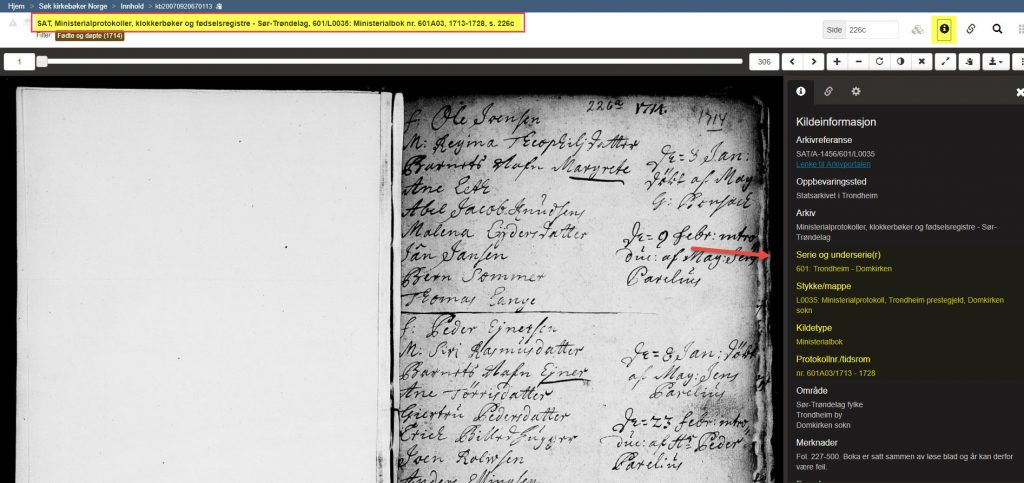 Hjem > Søk kirkebøker Norge > Innhold > kb20070920670113
SAT, Ministerialprotokoller, klokkerbøker og fødselsregistre - Sør-Trøndelag, 601/L0035: Ministerialbok nr. 601A03, 1713-1728, s. 226c
Filter: Fødte og døpte (1714)
Side 226c
1
306
226a 1714.
1714
f: Ole Ivensen
M: Regina Theophilj datter
Barnets Nafn Margrete
Ane
Abel Jacob Knudsens
Malena Ejdersdatter
Jan Jansen
Bern Sommer
Thomas Lange
De= 3 Jan:
døbt af May:
G:
De= 9 febr: intro
duc: af May: Jens
Parelius
f: Peder Ejnersen
M: Siri Rasmusdatter
Barnets Nafn Ejner
Ane Tørrisdatter
Giertru Pedersdatter
Erich Billedhugger
Joen Rolwsen
Anders
De= 8 Jan: døbt
af May: Jens
Parelius
De= 23 febr: intro
duc: af Hr Peder
Parelius
Kildeinformasjon
Arkivreferanse
SAT/A-1456/601/L0035
Lenke til Arkivportalen
Oppbevaringssted
Statsarkivet i Trondheim
Arkiv
Ministerialprotokoller, klokkerbøker og fødselsregistre - Sør-
Trøndelag
Serie og underserie(r)
601: Trondheim - Domkirken
Stykke/mappe
L0035: Ministerialprotokoll, Trondheim prestegjeld, Domkirken
sokn
Kildetype
Ministerialbok
Protokollnr./tidsrom
nr. 601A03/1713 - 1728
Område
Sør-Trøndelag fylke
Trondheim by
Domkirken sokn
Merknader
Fol. 227-500. Boka er satt sammen av løse blad og år kan derfor
være feil.